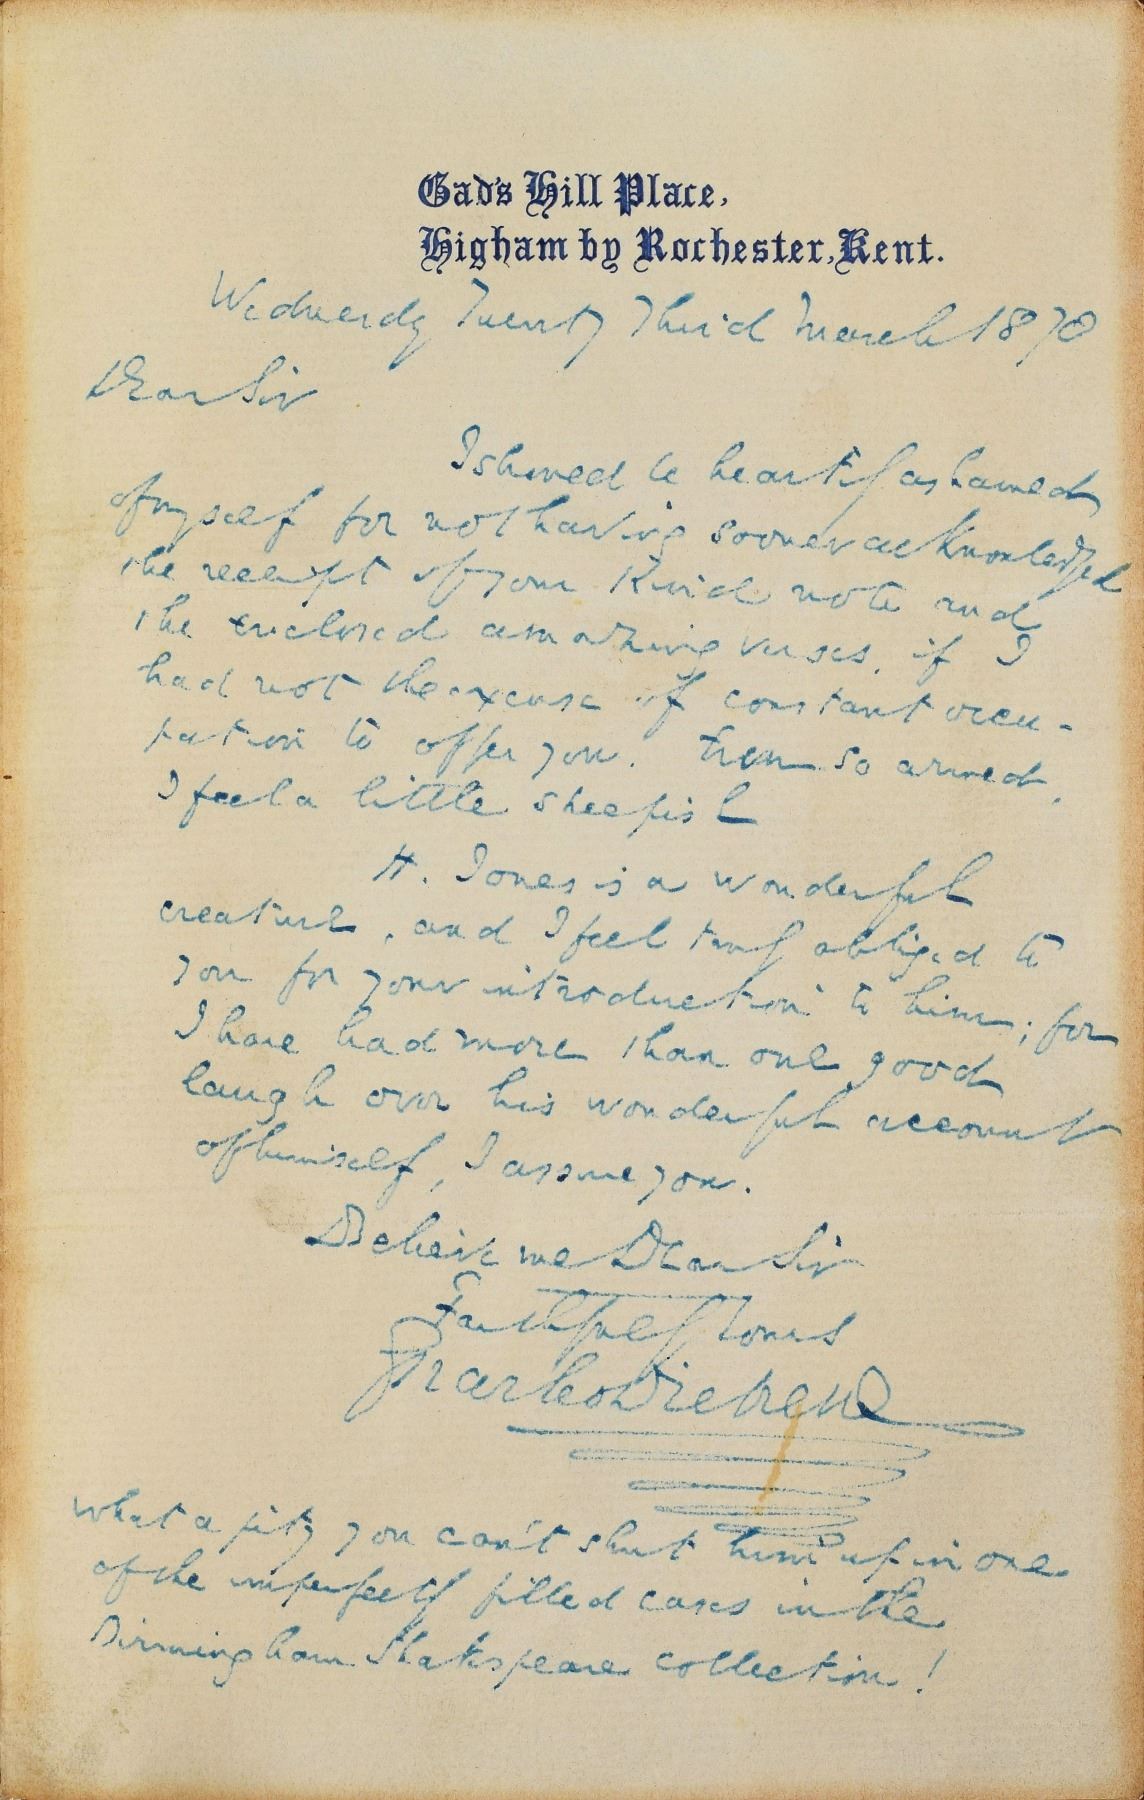 Gad's Hill Place,
Higham by Rochester, Kent.
Wednesday Twenty Third March 1870
Dear Sir
I should be heartily ashamed
of myself for not having sooner acknowledged
the receipt of your kind note and
the enclosed amazing verses, if I
had not the excuse of constant occu-
pation to offer you. Even so armed,
I feel a little sheepish
H. Jones is a wonderful
creature, and I feel truly obliged to
you for your introduction to him; for
I have had more than one good
laugh over his wonderful account
of himself, I assure you.
Believe me Dear Sir
Faithfully Yours
Charles Dickens
What a pity you can't shut him up in one
of the imperfectly filled cases in the
Birmingham Shakspeare collection!